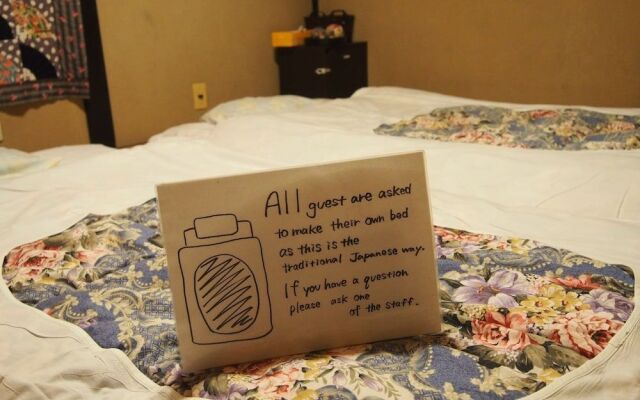 All guest are asked
to make their own bed
as this is the
traditional Japanese way.
If you have a question
please ask one
of the staff.